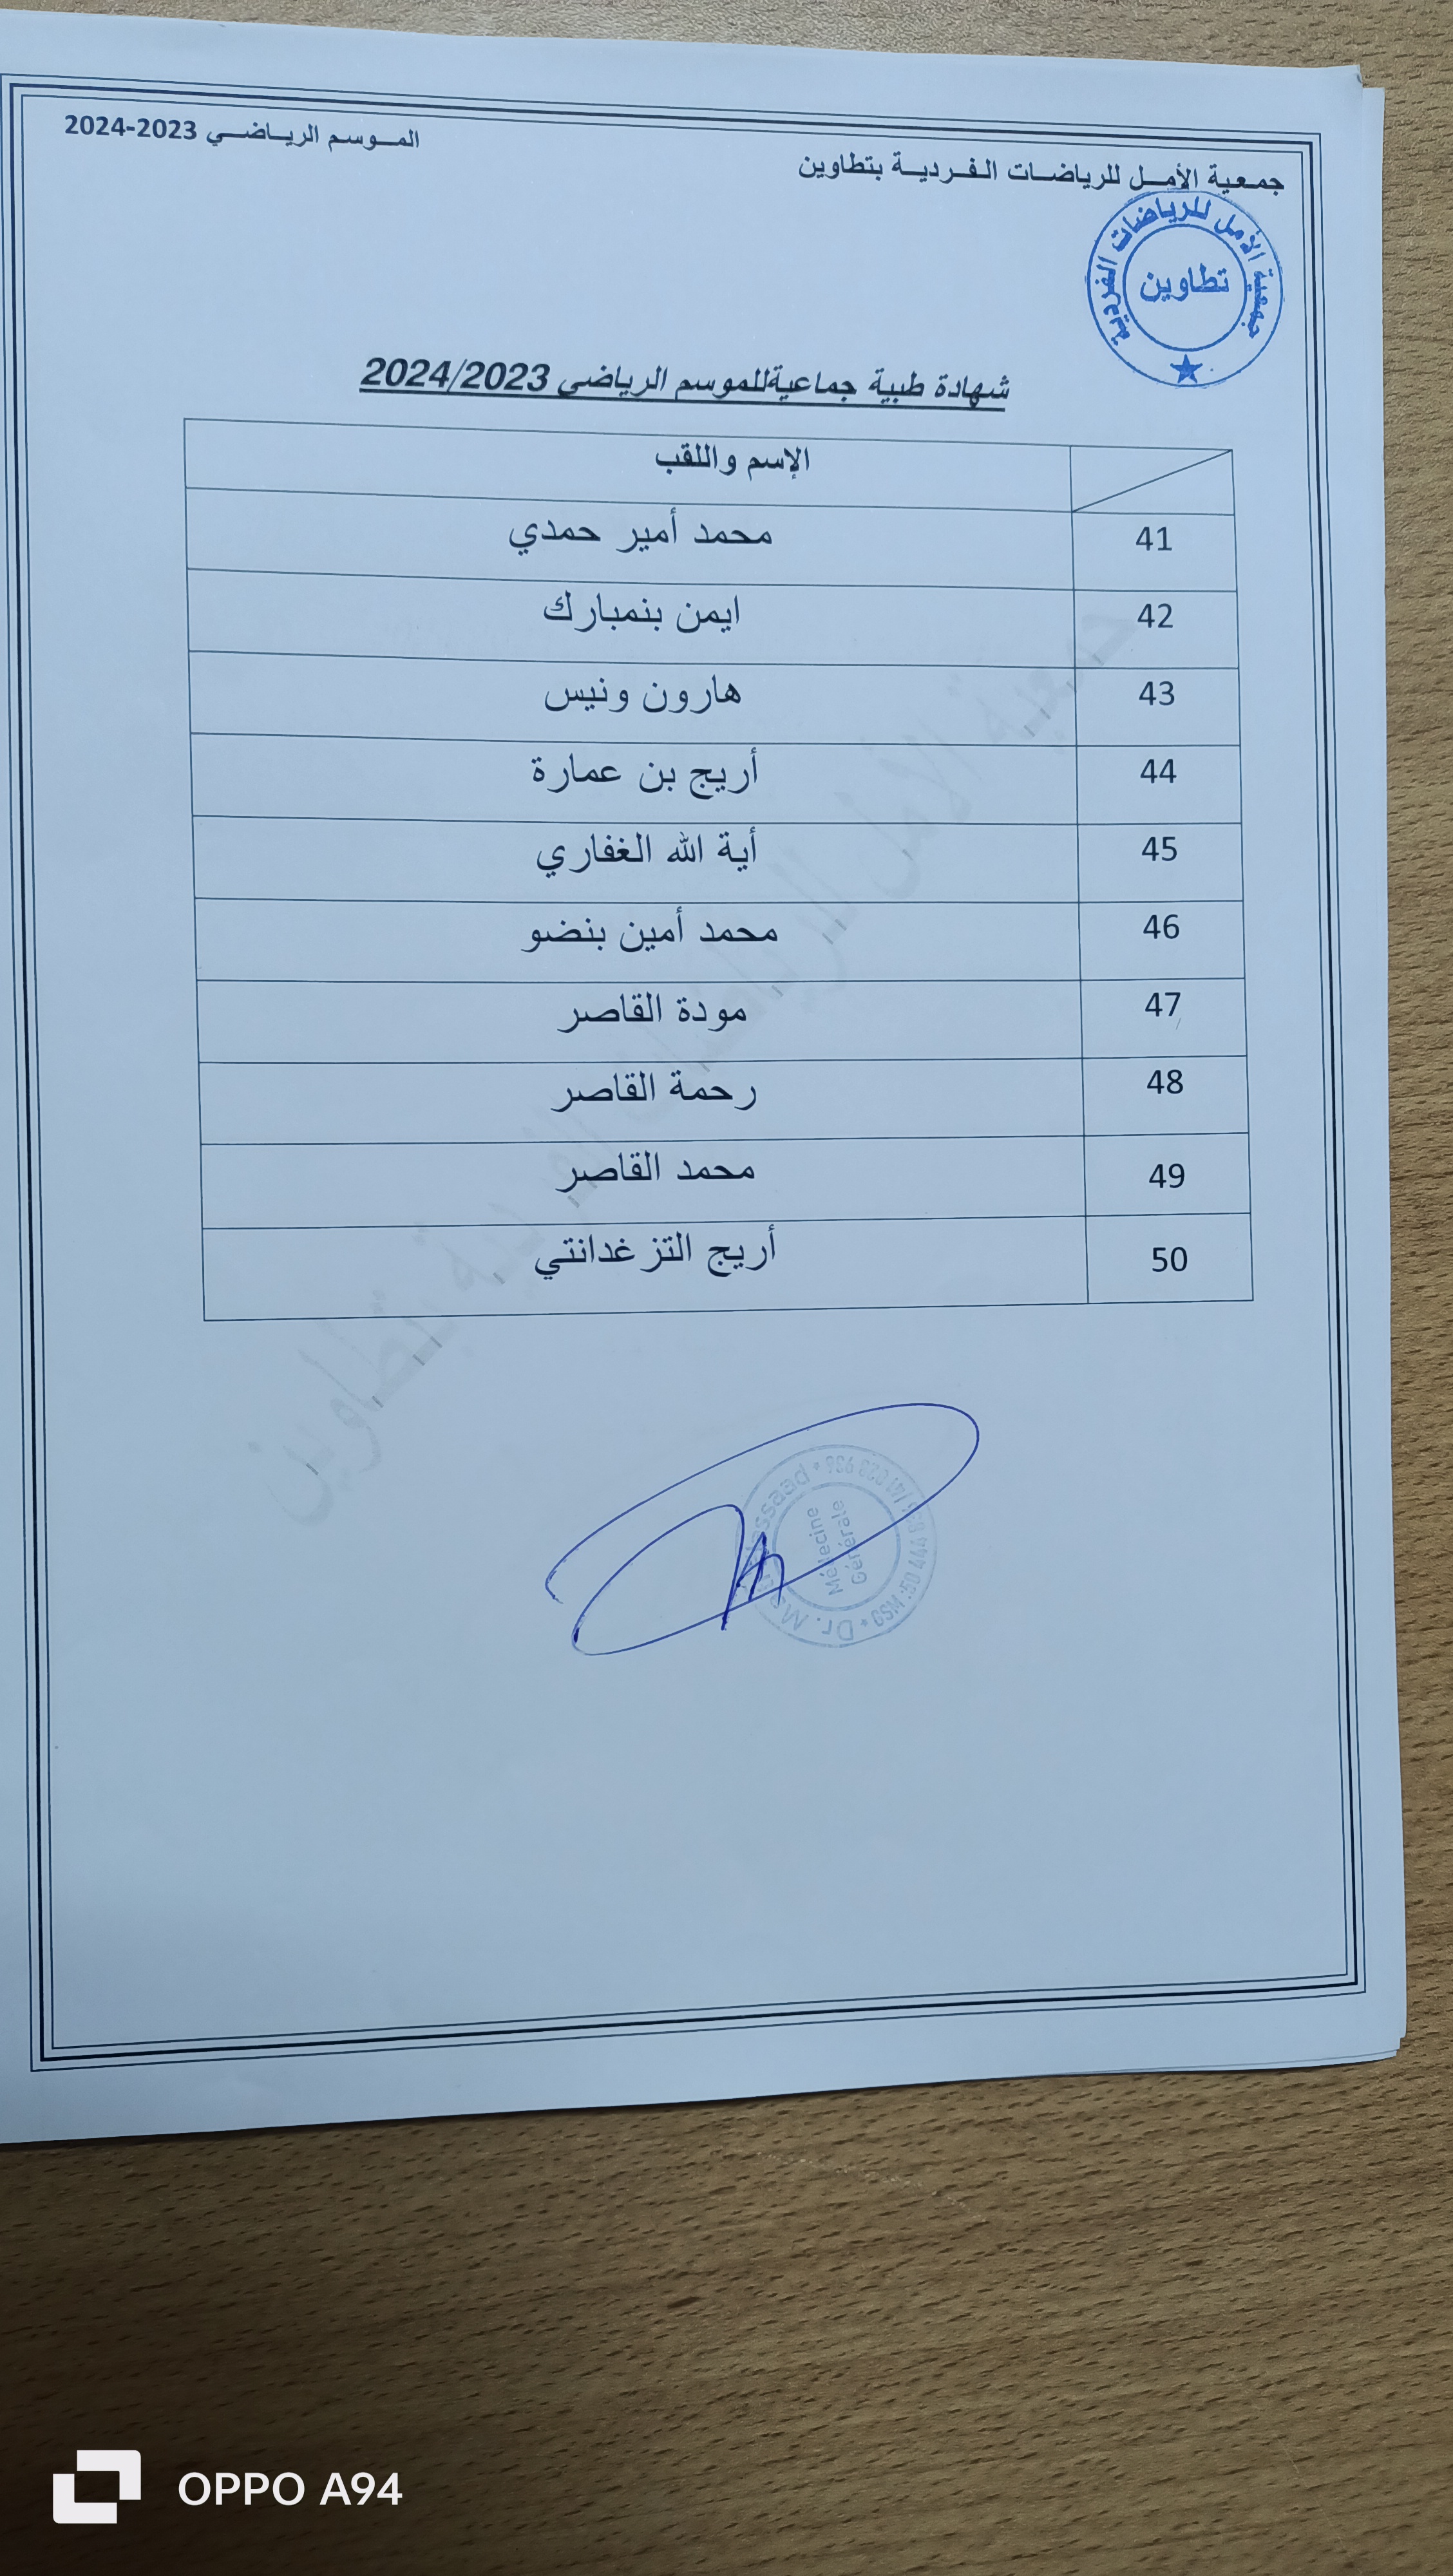 جمعية الأمل للرياضات الفردية بتطاوين
الموسم الرياضي 2023-2024
جمعية الأمل للرياضات الفردية
تطاوين
شهادة طبية جماعيةللموسم الرياضي 2024/2023
الإسم واللقب
41 محمد أمير حمدي
42 ايمن بنمبارك
43 هارون ونيس
44 أريج بن عمارة
45 أية الله الغفاري
46 محمد أمين بنضو
47 مودة القاصر
48 رحمة القاصر
49 محمد القاصر
50 أريج التزغدانتي
جمعية الأمل للرياضات الفردية بتطاوين
Dr.
Médecine
Générale
GSM :50 44
OPPO A94